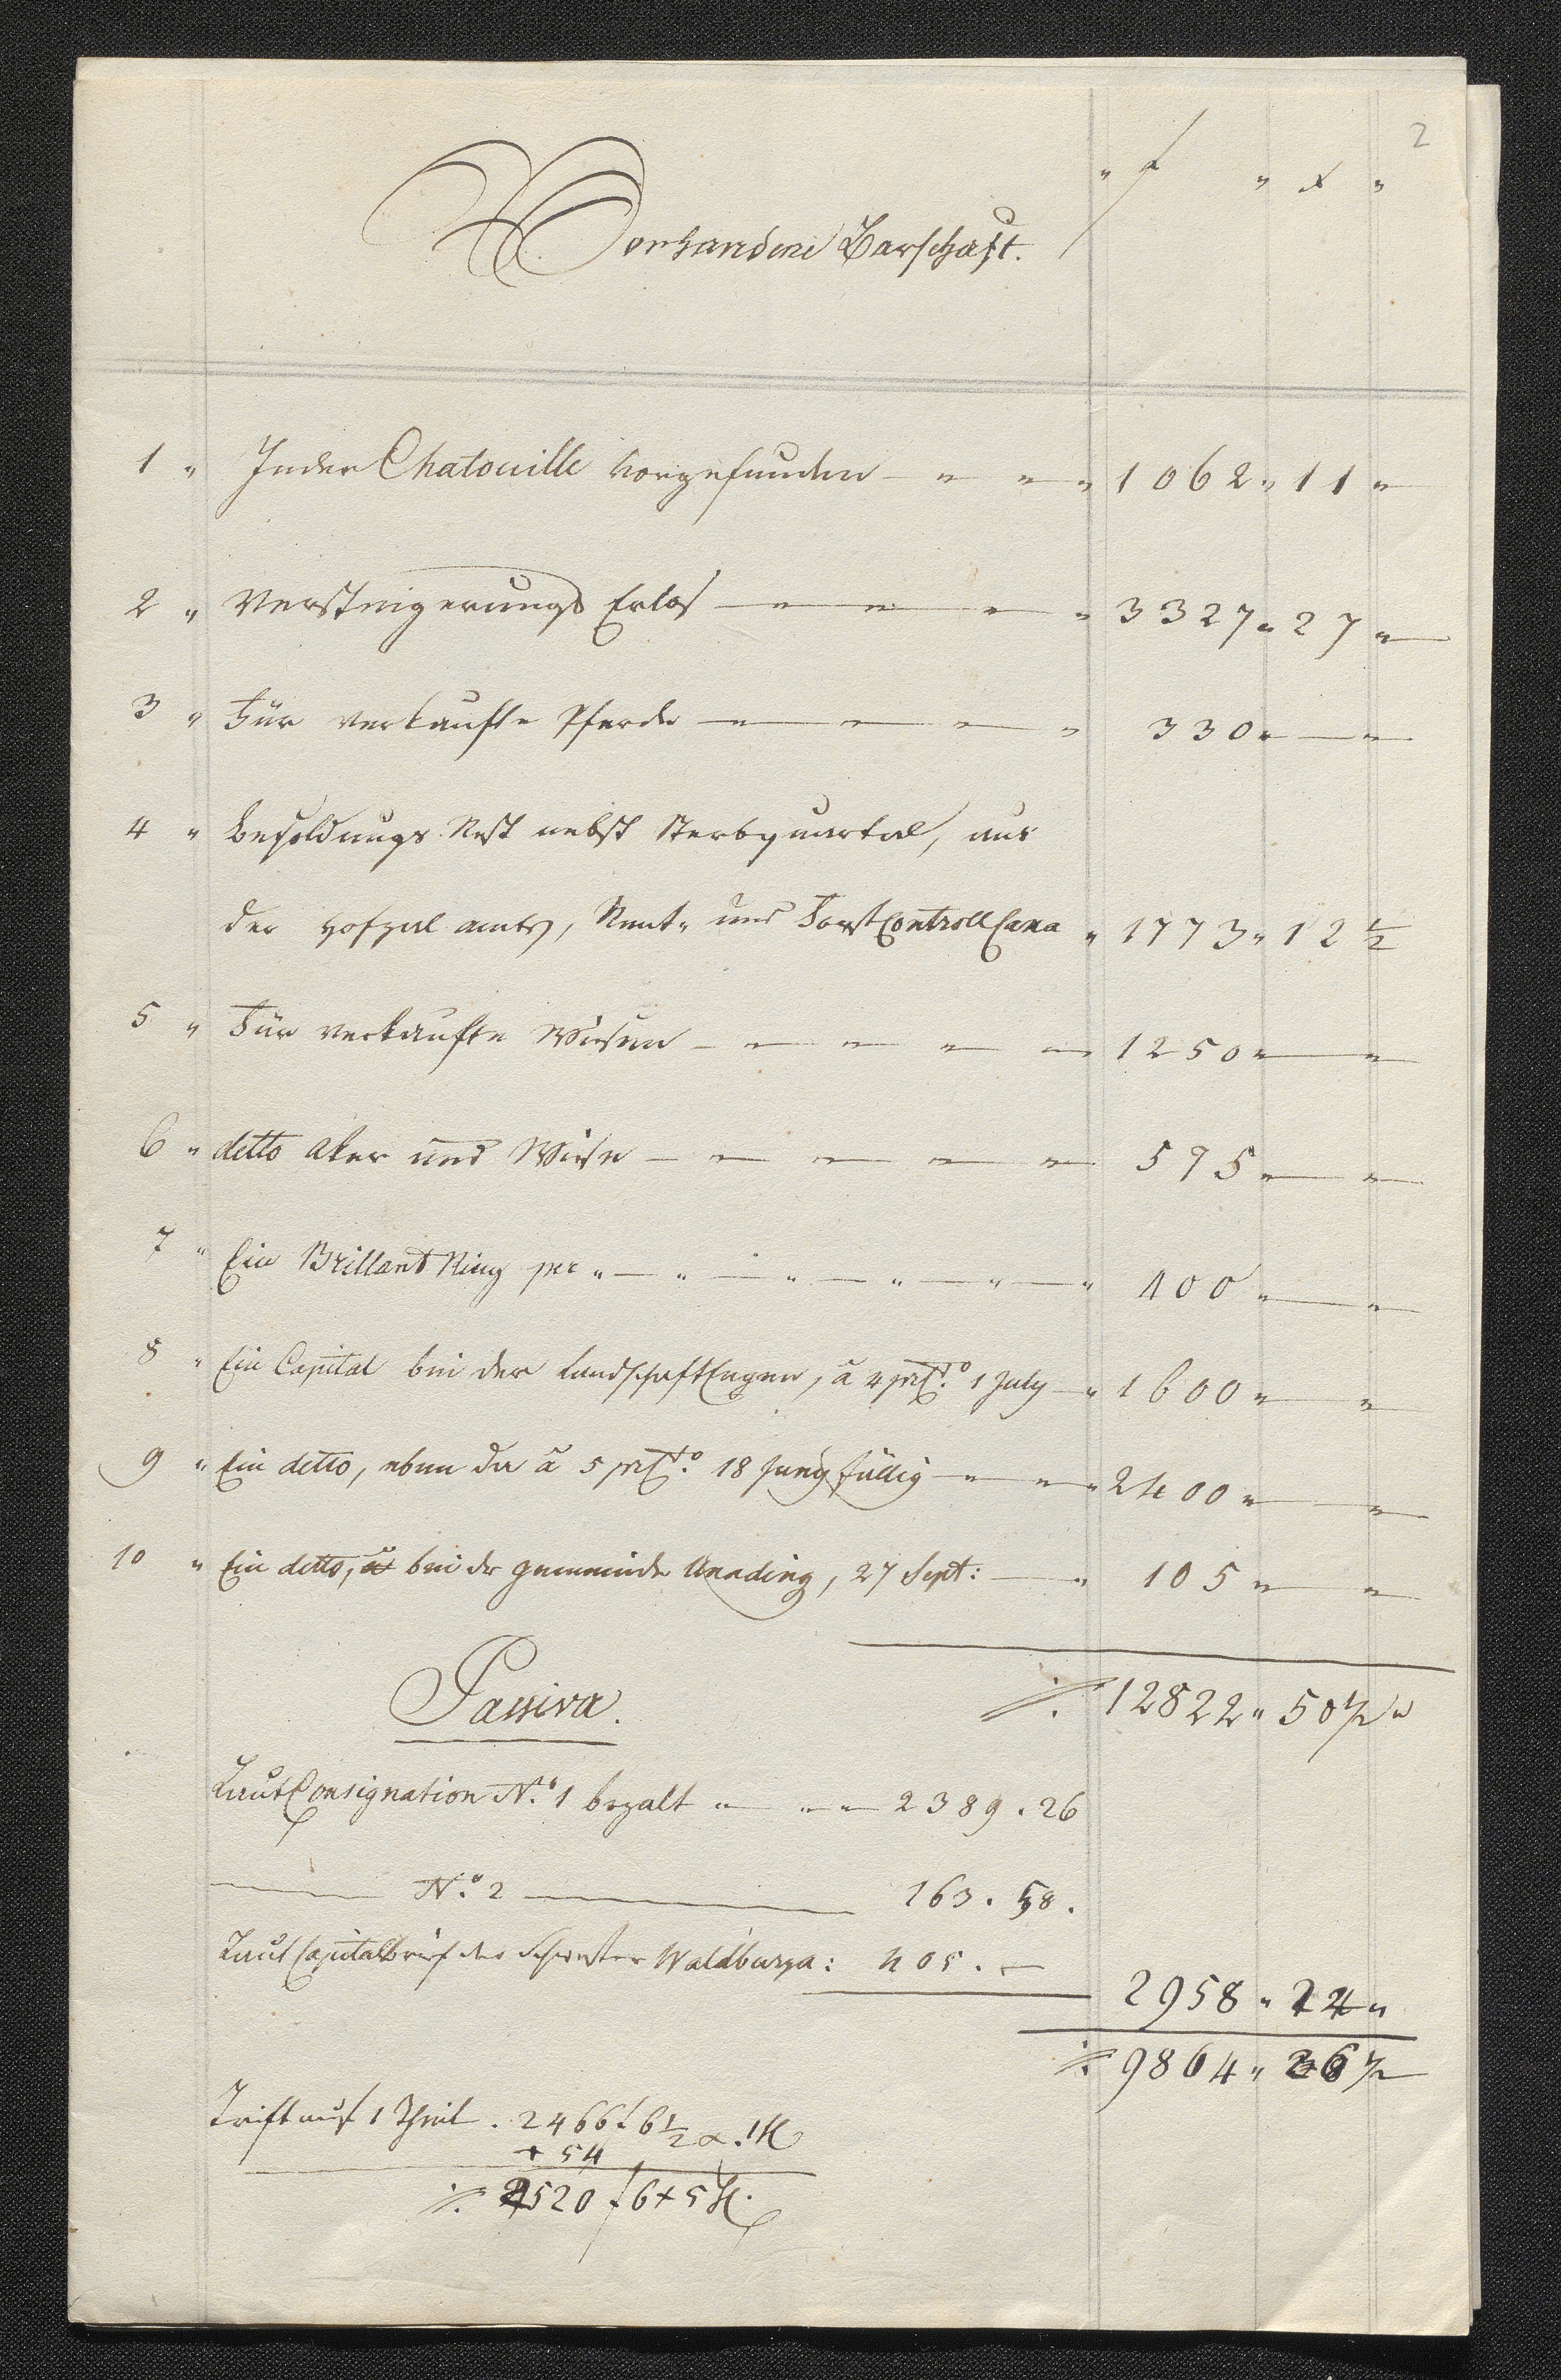 2
" f " x "
Vorhandene Barschaft.
1 " In der Chatouille vorgefunden — " — " — " 1062 " 11 "
2 " Versteigerungs Erlos — " — " — " — " 3327 " 27 "
3 " Für verkaufte Pferde — " — " — " — " 330 " — "
4 " Besoldungs Rest nebst Sterbquartal, aus
der Hofzal amts, Rent- und Forst Controll Cassa " 1773 " 12 ½
5 " Für verkaufte Wiesen — " — " — " — " 1250 " — "
6 " detto aker und Wiese — " — " — " — " 575 " — "
7 " Ein Brillant Ring per " — " — " — " — " — " 400 " — "
8 " Ein Capital bei der Landschaft Engen, a 4 prCto. 1 July — " 1600 " — "
9 " Ein detto, eben da a 5 prCto. 18 Juny fällig — " — " 2400 " — "
10 " Ein detto, bei der gemeinde Aunading, 27 Sept: — " 105 " — "
Passiva.
./. 12822 " 50 ½ "
Laut Consignation No. 1 bezalt " — " — " 2389 . 26
——— No. 2 ——— 163 . 58 .
Laut Capitalbrief der Schwester Waldburga: 405 . —
2958 " 24 "
./. 9864 " 26 ½
Trift auf 1 Theil . 2466 f 6 ½ x . 1 H
+ 54
./. 2520 f 6 x 5 H.